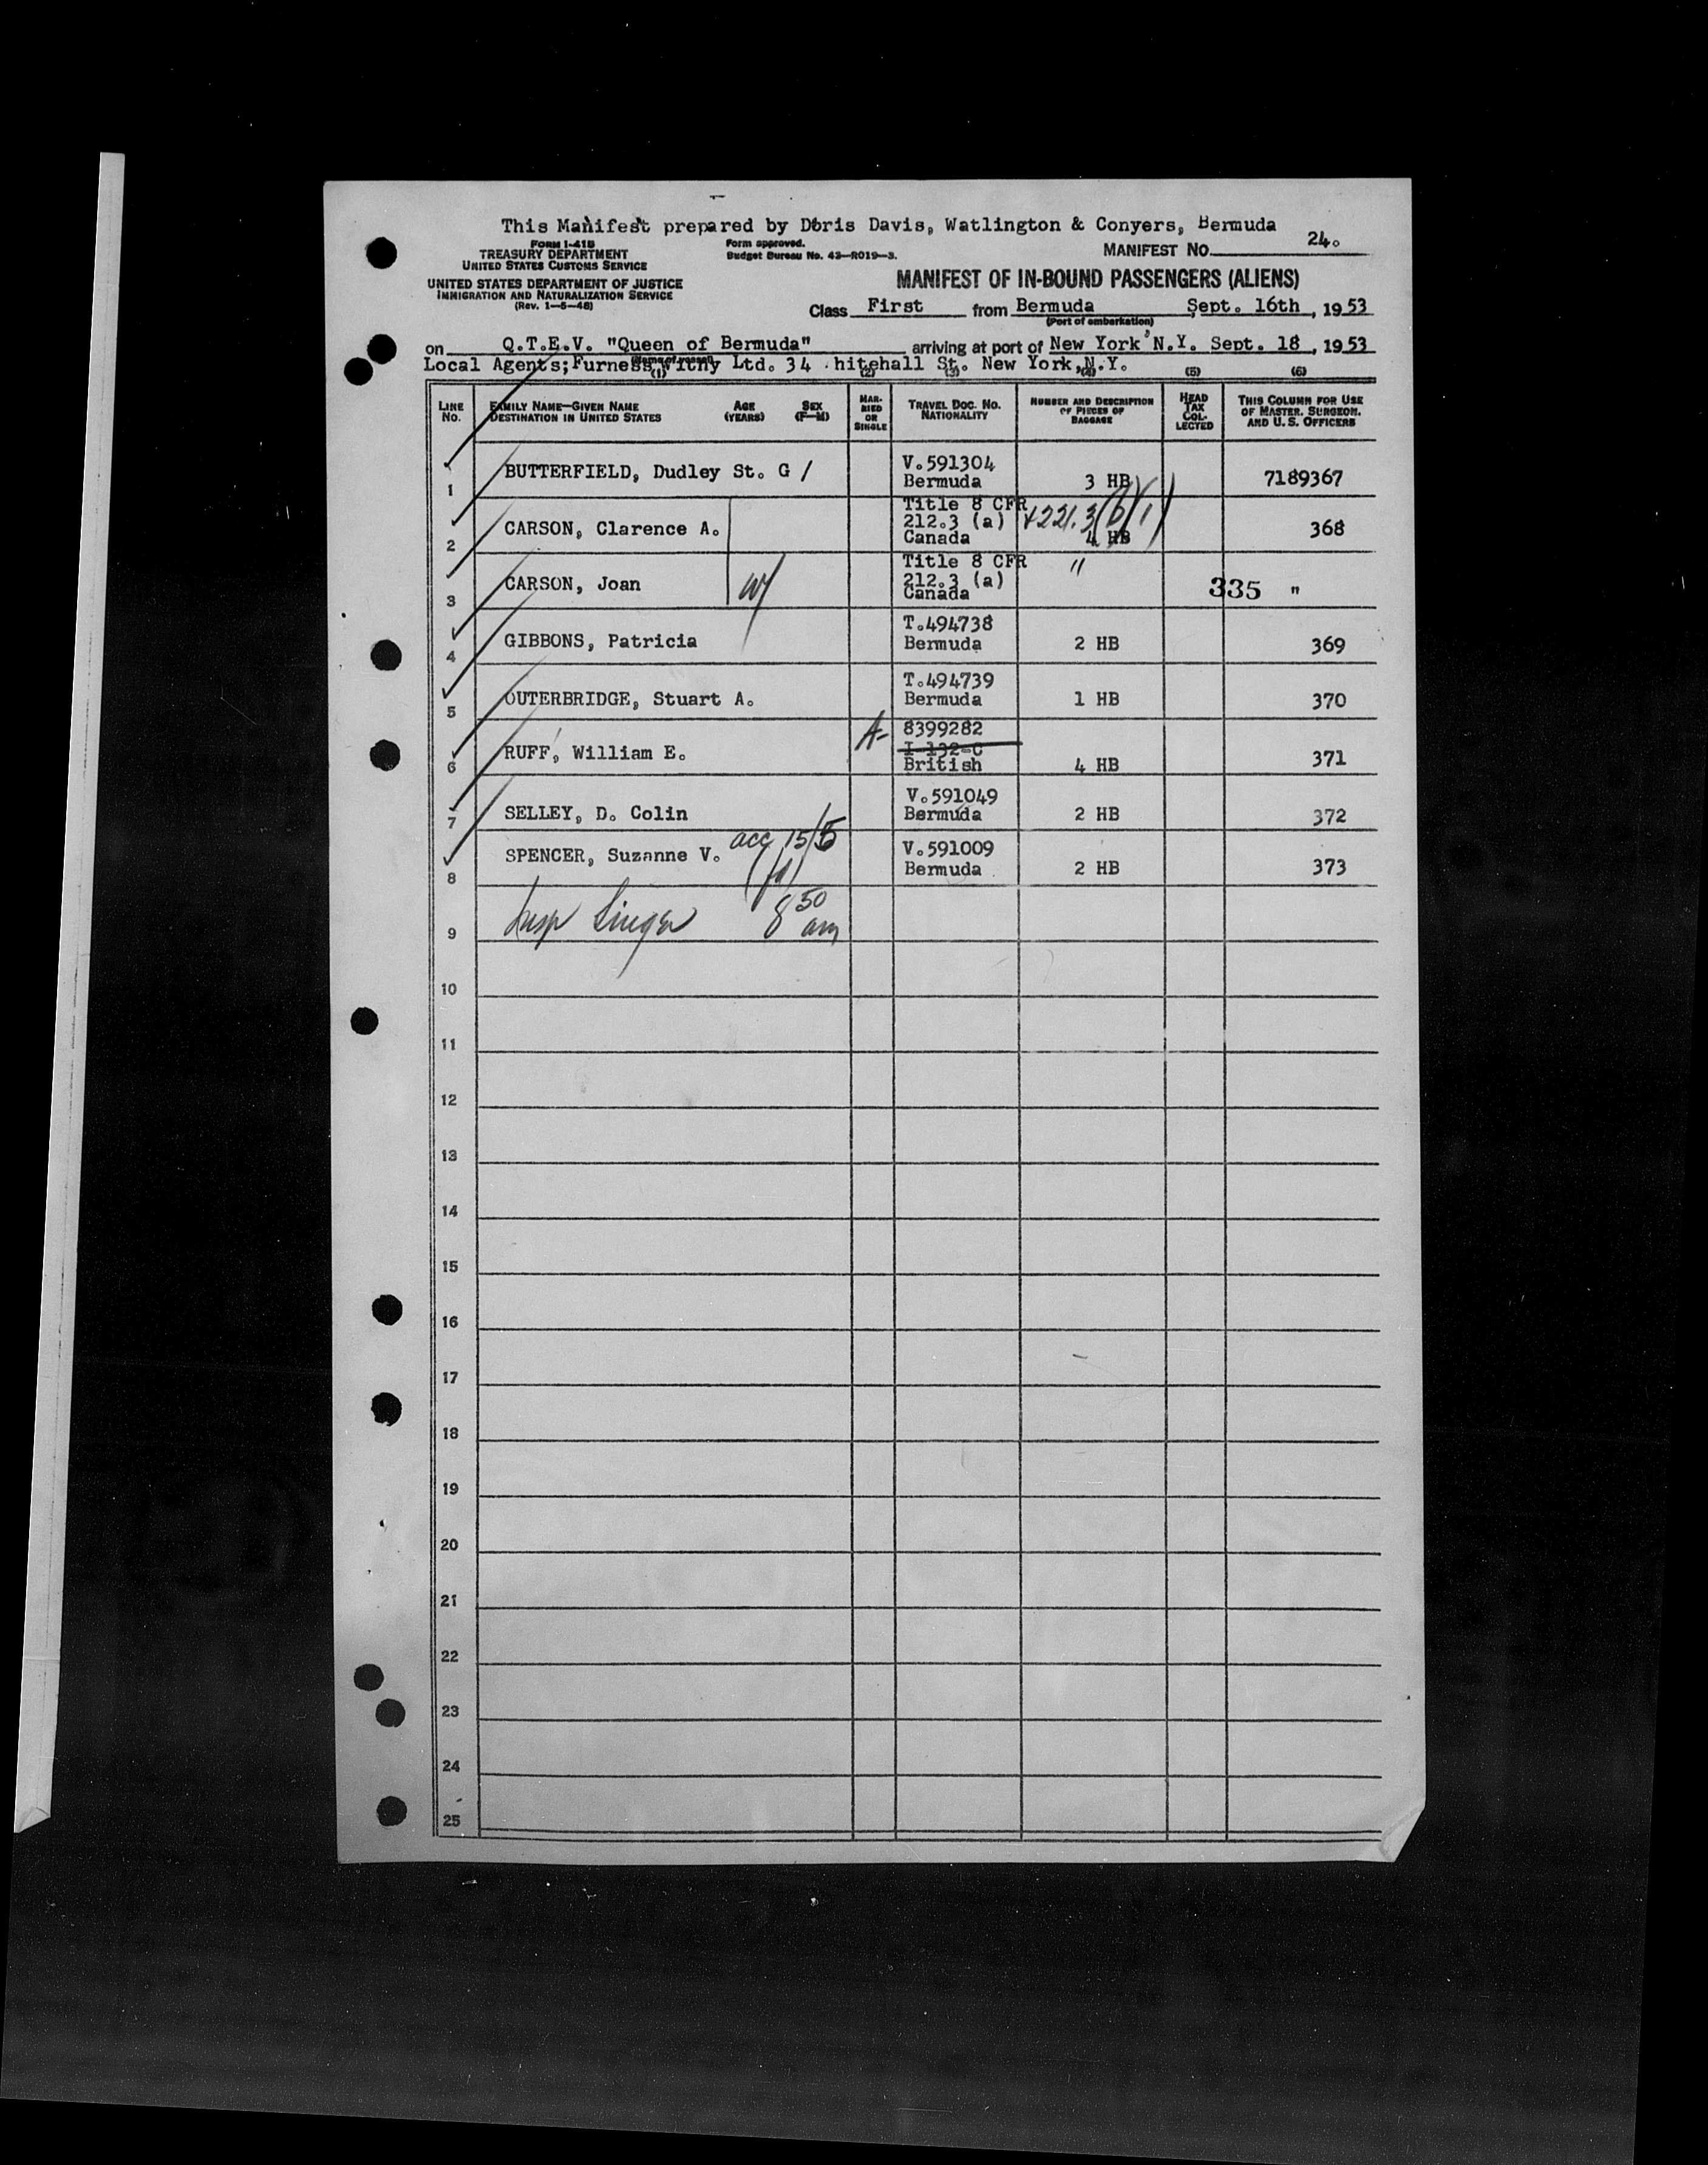 This Manifest prepared by Doris Davis, Watlington & Conyers, Bermuda
FORM I-415
TREASURY DEPARTMENT
UNITED STATES CUSTOMS SERVICE
UNITED STATES DEPARTMENT OF JUSTICE
IMMIGRATION AND NATURALIZATION SERVICE
(Rev. 1-5-48)
Form approved.
Budget Bureau No. 43-R019-3.
MANIFEST NO. 24.
MANIFEST OF IN-BOUND PASSENGERS (ALIENS)
Class First from Bermuda Sept. 16th, 1953
(Port of embarkation)
on Q.T.E.V. "Queen of Bermuda" arriving at port of New York N.Y. Sept. 18, 1953
(Name of vessel)
Local Agents; Furness Withy Ltd. 34 hitehall St. New York, N.Y.
(1) (2) (3) (4) (5) (6)
LINE No. FAMILY NAME—GIVEN NAME DESTINATION IN UNITED STATES AGE (YEARS) SEX (F-M) MARRIED OR SINGLE TRAVEL DOC. NO. NATIONALITY NUMBER AND DESCRIPTION OF PIECES OF BAGGAGE HEAD TAX COLLECTED THIS COLUMN FOR USE OF MASTER, SURGEON, AND U. S. OFFICERS
1 BUTTERFIELD, Dudley St. G / V.591304 Bermuda 3 HB 7189367
2 CARSON, Clarence A. Title 8 CFR 212.3 (a) Canada +221.3(b)(1) 4 HB 368
3 CARSON, Joan W/ Title 8 CFR 212.3 (a) Canada " 335 "
4 GIBBONS, Patricia T.494738 Bermuda 2 HB 369
5 OUTERBRIDGE, Stuart A. T.494739 Bermuda 1 HB 370
6 RUFF, William E. A- 8399282 I-132-C British 4 HB 371
7 SELLEY, D. Colin V.591049 Bermuda 2 HB 372
8 SPENCER, Suzanne V. acc 15/5 V.591009 Bermuda 2 HB 373
9 Insp Singer 8 50 am
10
11
12
13
14
15
16
17
18
19
20
21
22
23
24
25